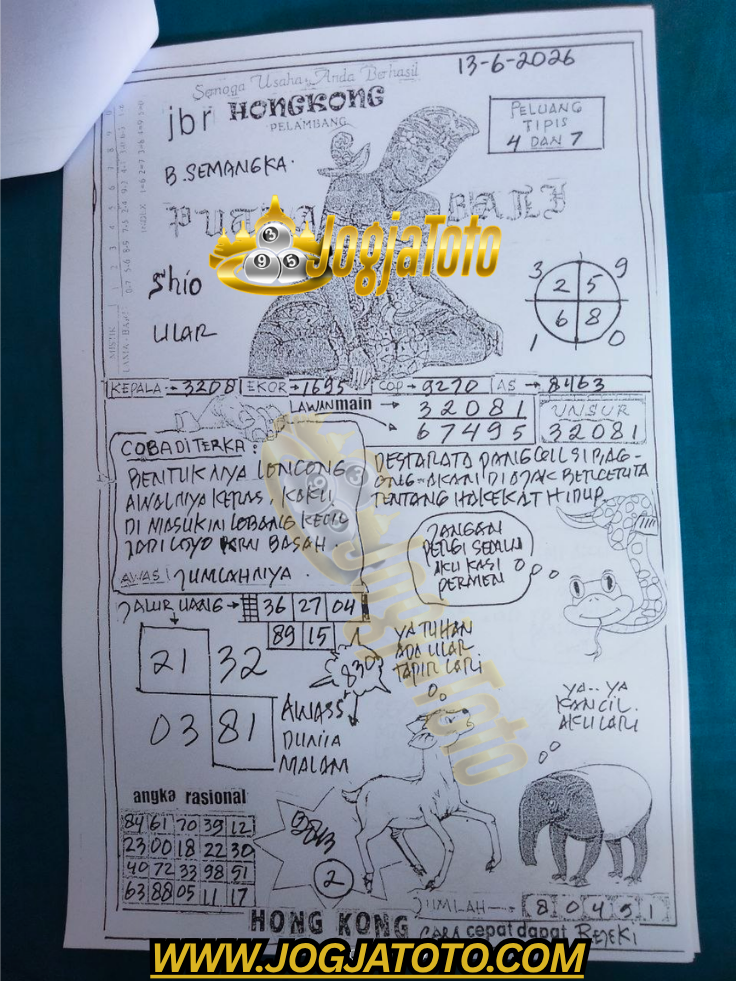 13-6-2026
Semoga Usaha Anda Berhasil
jbr HONGKONG
PELAMBANG
PELUANG
TIPIS
4 DAN 7
B. SEMANGKA.
BALI
JogjaToto
3 9 5
Shio
ULAR
3 9
2 5
6 8
1 0
KEPALA → 32081 EKOR → 1695 COP → 9270 AS → 8463
LAWAN main → 32081
67495
UNSUR
32081
COBA DITERKA :
BENTUKNYA LONCONG
AWALNYA KERAS, KAKU
DI MASUKIN LOBANG KECIL
JADI LOYO KRN BASAH.
AWAS! JUMLAHNYA.
DESTARATA
AKAN DI AJAK BERCERITA
TENTANG HAKEKAT HIDUP
JANGAN
PERGI SEDULU
AKU KASI
PERMEN
JALUR UANG → 36 27 04
89 15
21 32
03 81
830
YA TUHAN
ADA ULAR
TAPIR LARI
AWASS
DUNIA
MALAM
YA.. YA
KANCIL.
AKU LARI
JogjaToto
angka rasional
84 61 70 39 12
23 00 18 22 30
40 72 33 98 51
63 88 05 11 17
2
JUMLAH → 8 0 4 5 1
HONG KONG CARA cepat dapat REJEKI
WWW.JOGJATOTO.COM